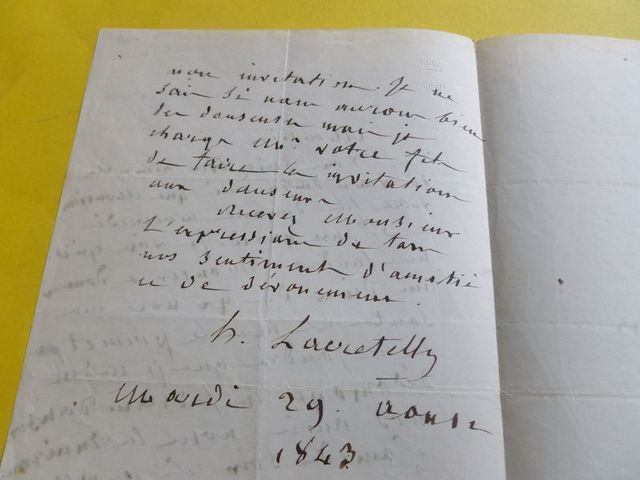 notre invitation. Je ne
sais si nous aurons bien
des danseurs mais je
charge Mr votre fils
de faire les invitations
aux danseurs
recevez Monsieur
l'expression de tous
nos sentiments d'amitié
et de dévouement.
h. Lacretelle
mardi 29. aoust
1843